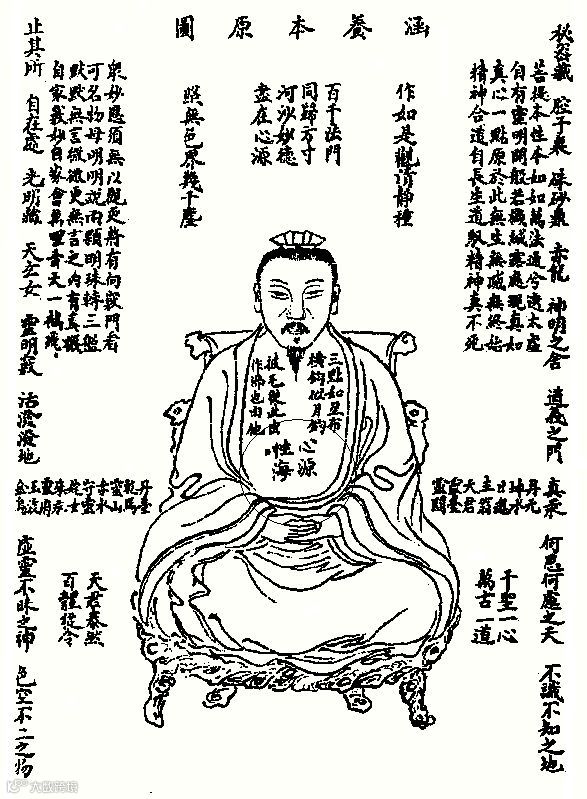 涵養本原圖
秘密藏 腔子裏 硃砂鼎 赤龍 神明之舍 道義之門 真汞 何思何慮之天 不識不知之地
菩提本性本如如萬法通兮遶太虛
自有靈明開般若機緘露處現真如
真心一點原於此無生無滅無終始
精神合道自長生道馭精神真不死
作如是觀清靜種
百千法門
同歸方寸
河沙妙德
盡在心源
照無色界幾千塵
衆妙應須無以觀更將有向竅門看
可名物母明明說兩顆明珠轉三盤
默默無言微微更無言之內有真機
自家妙自家會萬里青天一鶴飛
止其所 自在處 光明藏 天玄女 靈明竅 活潑潑地 虛靈不昧之神 色空不二之物
三點如星布
橫鉤似月
披毛從此出
作佛也由他
心源
性海
丹元
坤水
日魂
主翁
天君
靈臺
靈關
丹臺
乾馬
靈山
赤水
守靈
姹女
珠
靈明
玉液
金烏
千聖一心
萬古一道
天君泰然
百體從令